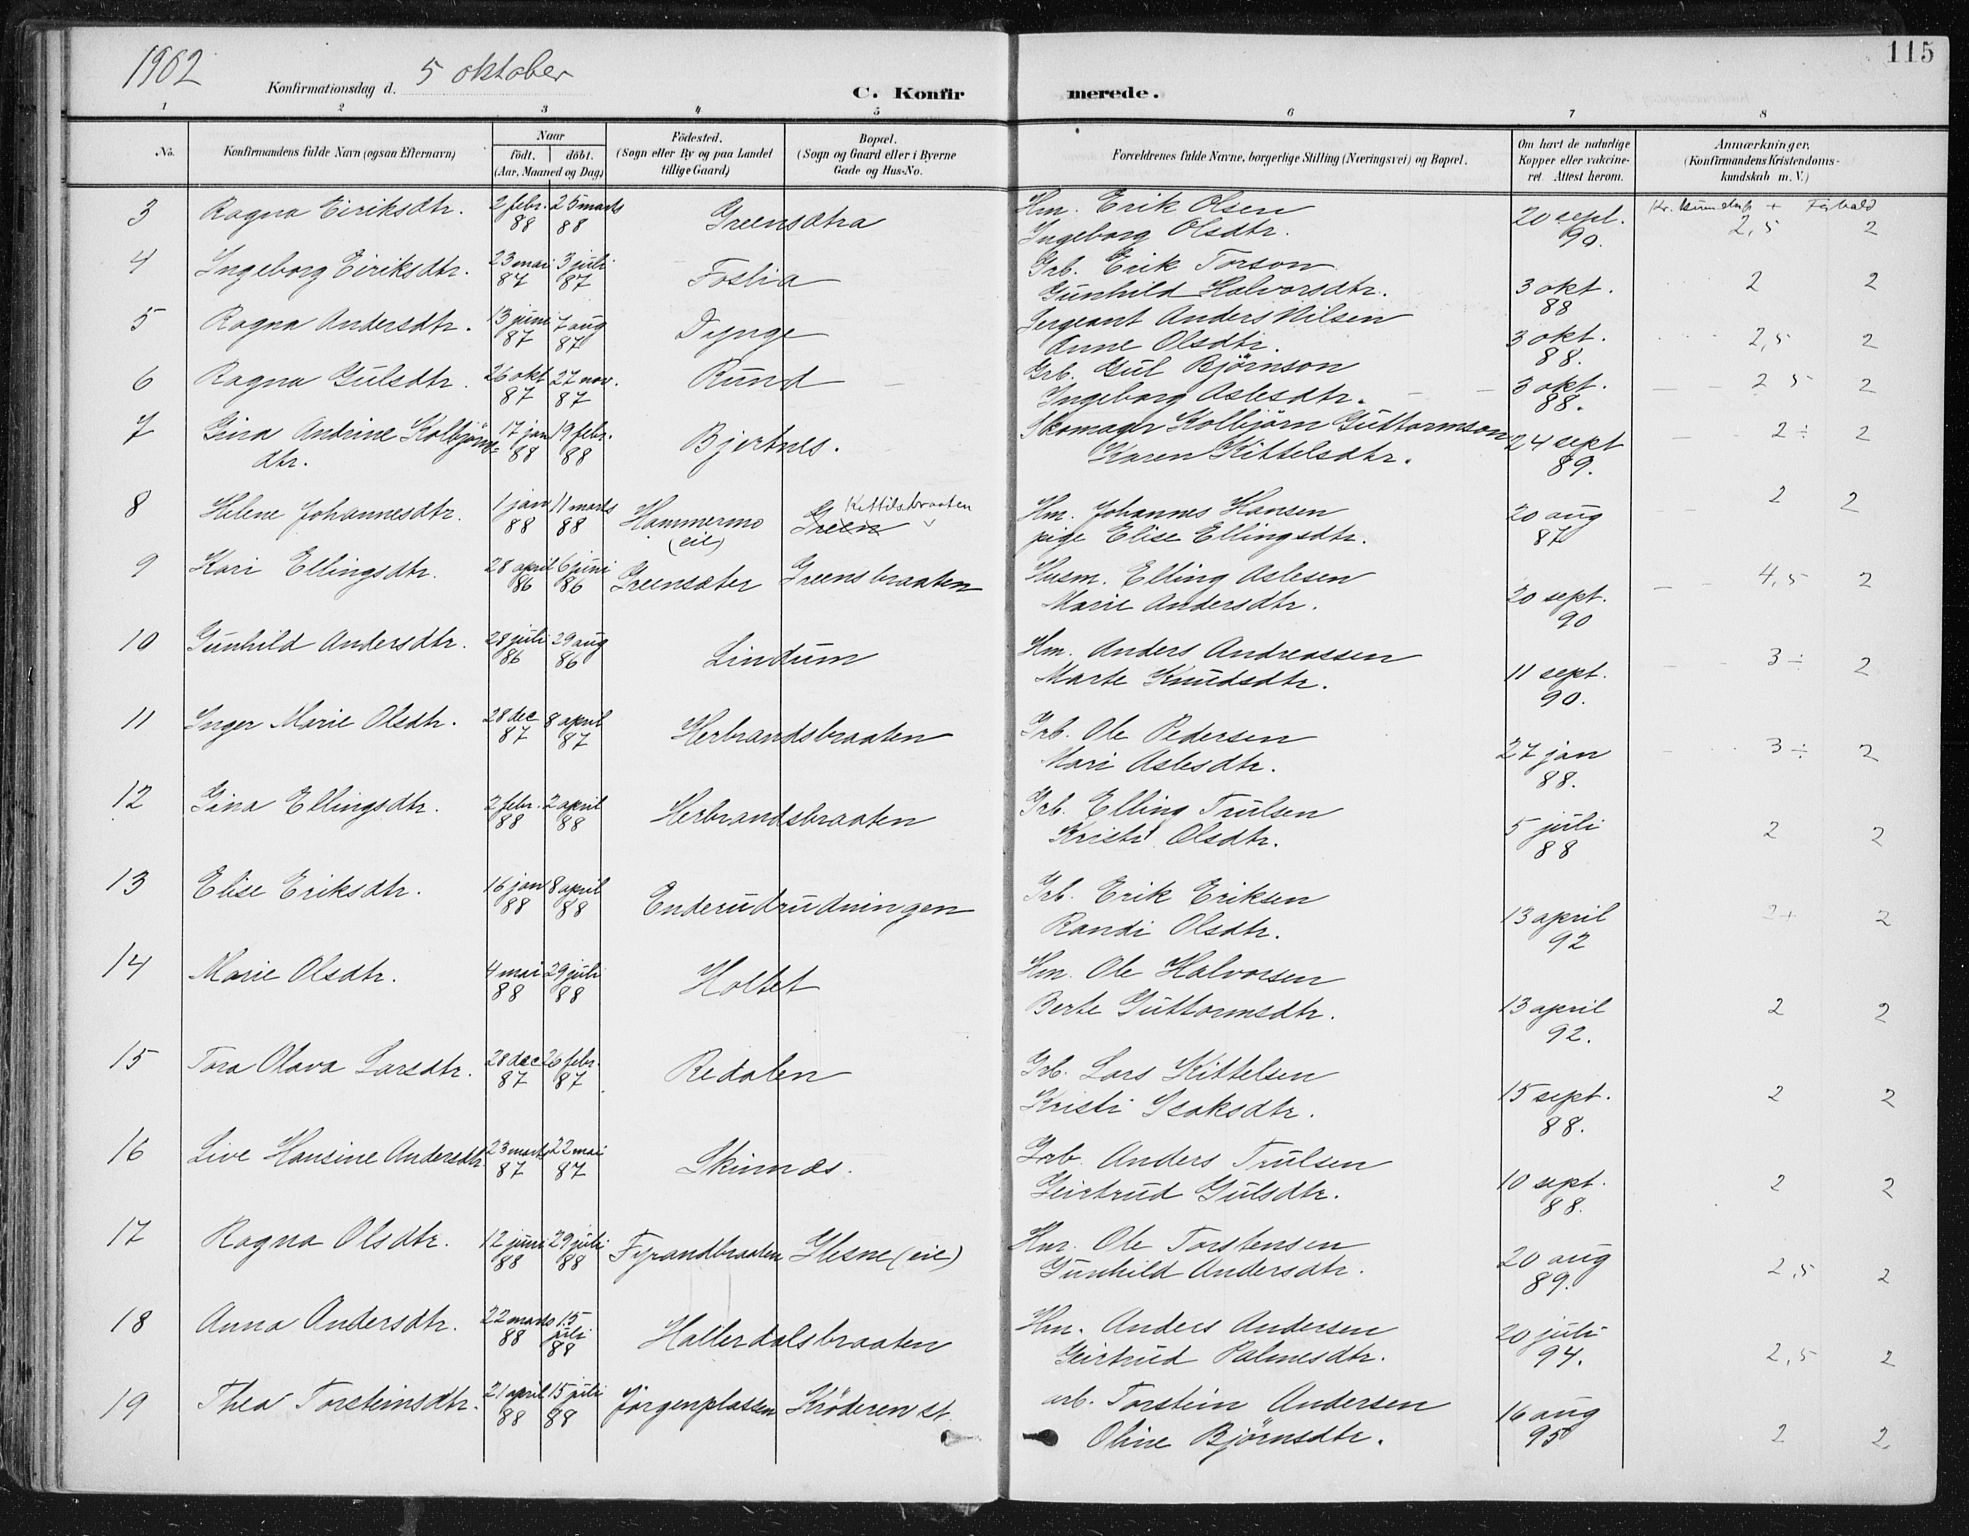 1902
Konfirmationsdag d. 5 oktober
C. Konfirmerede.
115
1 2 3 4 5 6 7 8
No. Konfirmandens fulde Navn (ogsaa Efternavn) Naar født. døbt. (Aar, Maaned og Dag) Fødested. (Sogn eller By og paa Landet tillige Gaard) Bopæl. (Sogn og Gaard eller i Byerne Gade og Hus-No. Forældrenes fulde Navne, borgerlige Stilling (Næringsvei) og Bopæl. Om havt de naturlige Kopper eller vaccineret Attest herom. Anmærkninger. (Konfirmandens Kristendomskundskab m. V.)
Kr. kundsk + Forhold
3 Ragna Eiriksdtr. 2 febr. 88 25 marts 88 Greensætra Hm. Erik Olsen
Ingeborg Olsdtr. 20 sept. 90. 2,5 2
4 Ingeborg Eiriksdtr. 23 mai 87 3 juli 87 Foslia Grb. Erik Torson
Gunhild Halvorsdtr. 3 okt. 88 2 2
5 Ragna Andersdtr. 13 juni 87 7 aug 87 Dynge Sergeant Anders Nilsen
Anne Olsdtr. 3 okt. 88. 2,5 2
6 Ragna Gulsdtr. 26 okt 87 27 nov. 87 Rund Grb. Gul Bjørnson
Ingeborg Aslesdtr. 3 okt. 88. 2 5 2
7 Gina Andrine Kolbjørns=
dtr. 17 jan 88 19 febr. 88 Bjertnes. Skomager Kolbjørn Guttormson
Karen Kittelsdtr. 24 sept 89. 2 ÷ 2
8 Helene Johannesdtr. 1 jan 88 11 marts 88 Hammermo (eie) Green Kittilsbraaten Hm. Johannes Hansen
pige Elise Ellingsdtr. 20 aug 87 2 2
9 Kari Ellingsdtr. 28 april 86 6 juni 86 Greensæter Greensbraaten Husm. Elling Aslesen
Marie Andersdtr. 20 sept. 90 4,5 2
10 Gunhild Andersdtr. 28 juli 86 29 aug 86 Lindum Hm. Anders Andreassen
Marte Knudsdtr. 11 sept. 90. 3 ÷ 2
11 Inger Marie Olsdtr. 28 dec 87 8 april 87 Herbrandsbraaten Grb. Ole Pedersen
Mari Aslesdtr. 27 jan 88. 3 ÷ 2
12 Gina Ellingsdtr. 2 febr. 88 2 april 88 Herbrandsbraaten Grb. Elling Trulsen
Kristi Olsdtr. 5 juli 88 2 2
13 Elise Eriksdtr. 16 jan 88 8 april 88 Enderudrudningen Grb. Erik Eriksen
Randi Olsdtr. 13 april 92 2+ 2
14 Marie Olsdtr. 4 mai 88 29 juli 88 Holtet Hm. Ole Halvorsen
Berte Guttormsdtr. 13 april 92. 2 2
15 Tora Olava Larsdtr. 28 dec 87 20 febr. 87 Redalen Grb. Lars Kittelsen
Kristi Isaksdtr. 15 sept. 88. 2 2
16 Live Hansine Andersdtr 23 marts 87 22 mai 87 Skinnæs. Grb. Anders Trulsen
Geirtrud Gulsdtr. 10 sept. 88. 2 2
17 Ragna Olsdtr. 12 juni 88 29 juli 88 Fyrandbraaten Glesne (eie) Hm. Ole Torstensen
Gunhild Andersdtr. 20 aug 89. 2,5 2
18 Anna Andersdtr. 22 marts 88 15 juli 88 Hallerdalsbraaten Hm. Anders Andersen
Geirtrud Palmesdtr. 20 juli 94. 2,5 2
19 Thea Torsteinsdtr. 21 april 88 15 juli 88 Jørgenplassen Krøderen st. arb. Torstein Andersen
Oline Bjørnsdtr. 16 aug 95 2 2